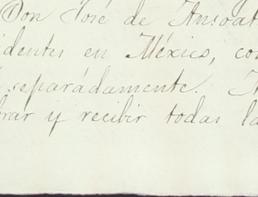 Don José de Ansoat
identes en México, con
separádamente.
rar y recibir todas la